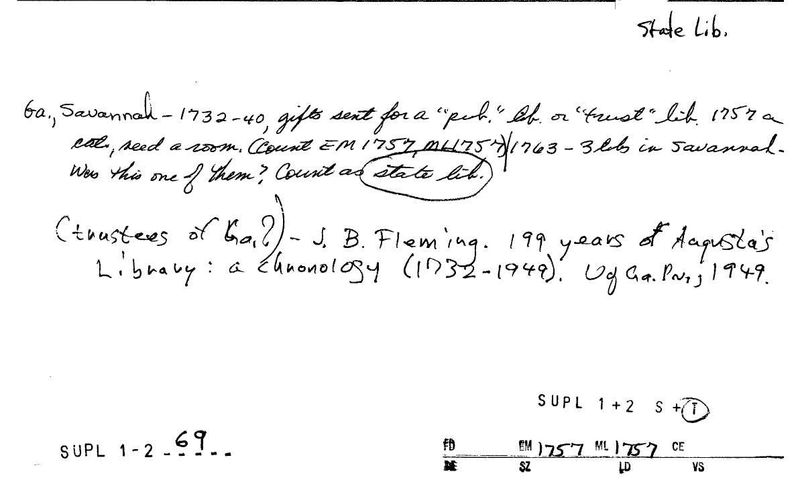 State Lib.
Ga., Savannah - 1732-40, gifts sent for a "pub." lib. or "trust" lib. 1757 a
cat., need a room. (Count EM 1757, ML 1757) 1763 - 3 libs in Savannah.
Was this one of them? Count as state lib.
(trustees of Ga.?) - J. B. Fleming. 199 years of Augusta's
Library: a chronology (1732-1949). U of Ga. Pr., 1949.
SUPL 1+2 S + T
SUPL 1-2 69
FD EM 1757 ML 1757 CE
DE SZ LD VS